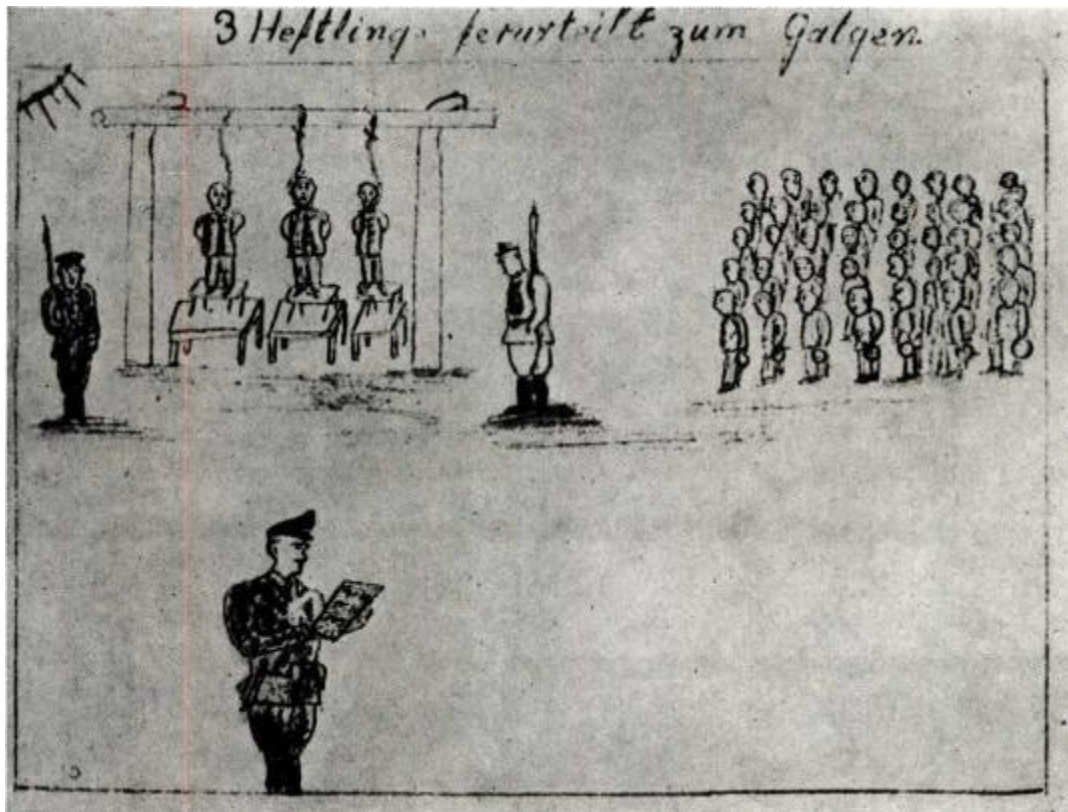 3 Heftling. ferurteilt zum Galgen.